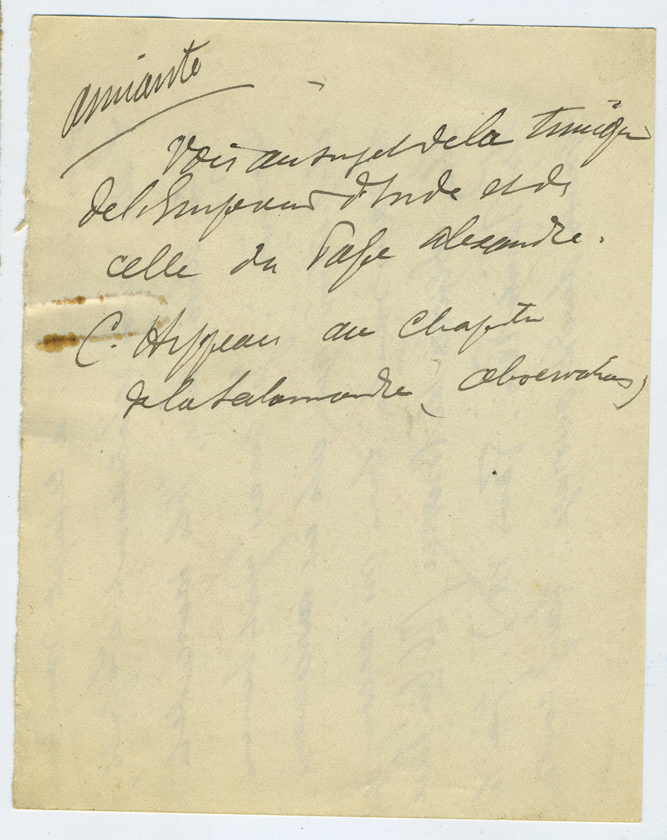 amiante
Voir au sujet de la tunique
de l'Empereur d'Inde et de
celle du Pape Alexandre.
C. Hippeau au Chapitre
de la Salamandre (Observations)